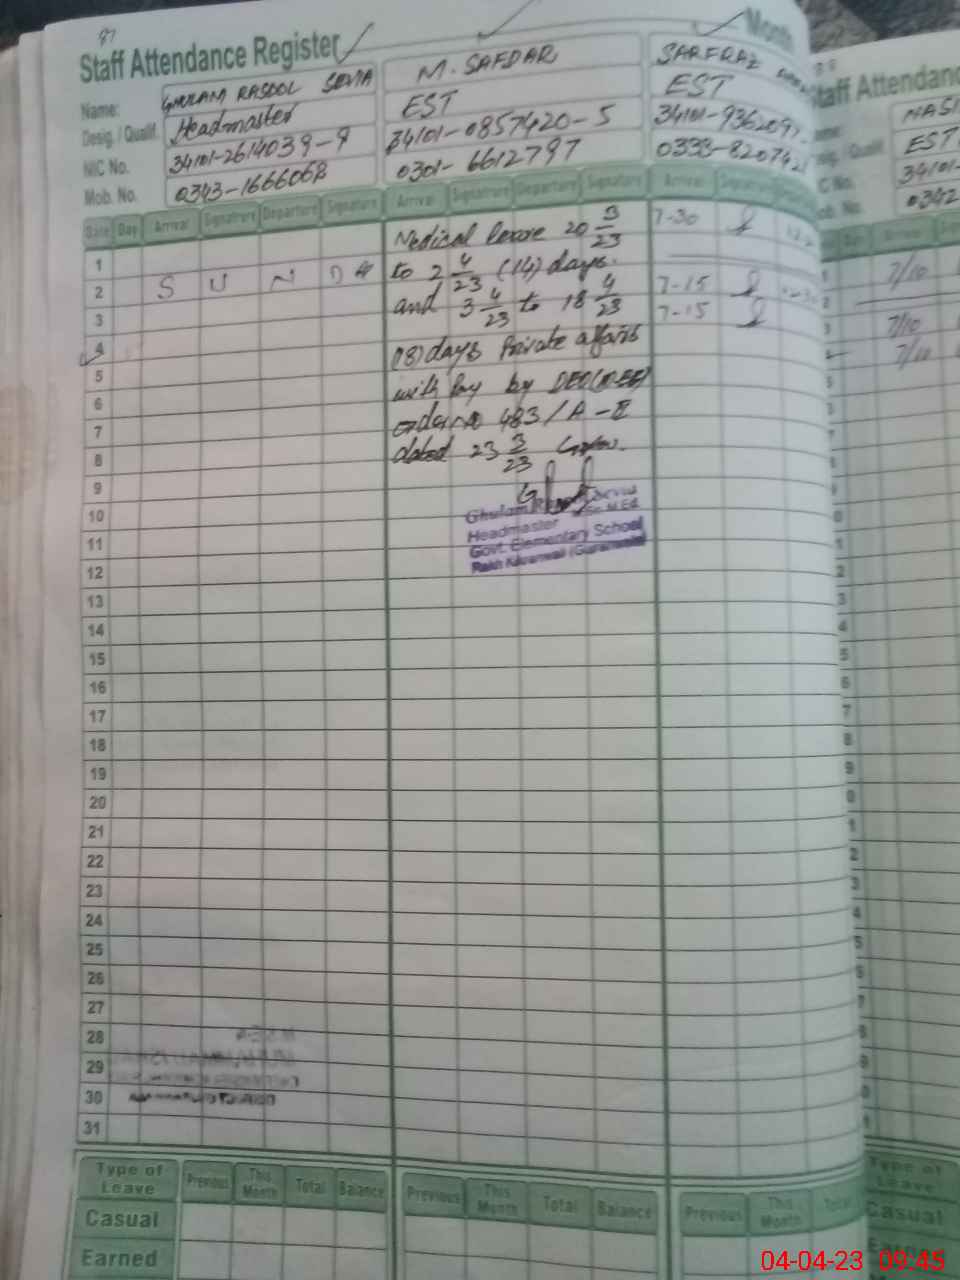 97
Staff Attendance Register
Month
Name: GHULAM RASOOL SEVIA M. SAFDAR SARFRAZ
Desig. / Qualif. Headmaster EST EST
NIC No. 34101-2614039-9 34101-0857420-5 34101-9362097-
Mob. No. 0343-1666068 0301-6612797 0333-8207421
Date Day Arrival Signature Departure Signature Arrival Signature Departure Signature Arrival Signature
1 Medical leave 20 3/23 7-30
2 S U N D A to 2 4/23 (14) days.
3 and 3 4/23 to 18 4/23 7-15
4 7-15
5 days Private affairs
6 with pay by DEO(M-EE)
7 order No 483/A-II
8 dated 23 3/23
9
10 Ghulam Rasool Sevia
11 Headmaster M.Ed
12 Govt. Elementary School
13
14
15
16
17
18
19
20
21
22
23
24
25
26
27
28
29
30
31
Type of Leave Previous This Month Total Balance Previous This Month Total Balance Previous This Month Total
Casual
Earned
Staff Attendance
EST
34101-
0342
7/10
7/10
7/10
Type of Leave
Casual
04-04-23 09:45